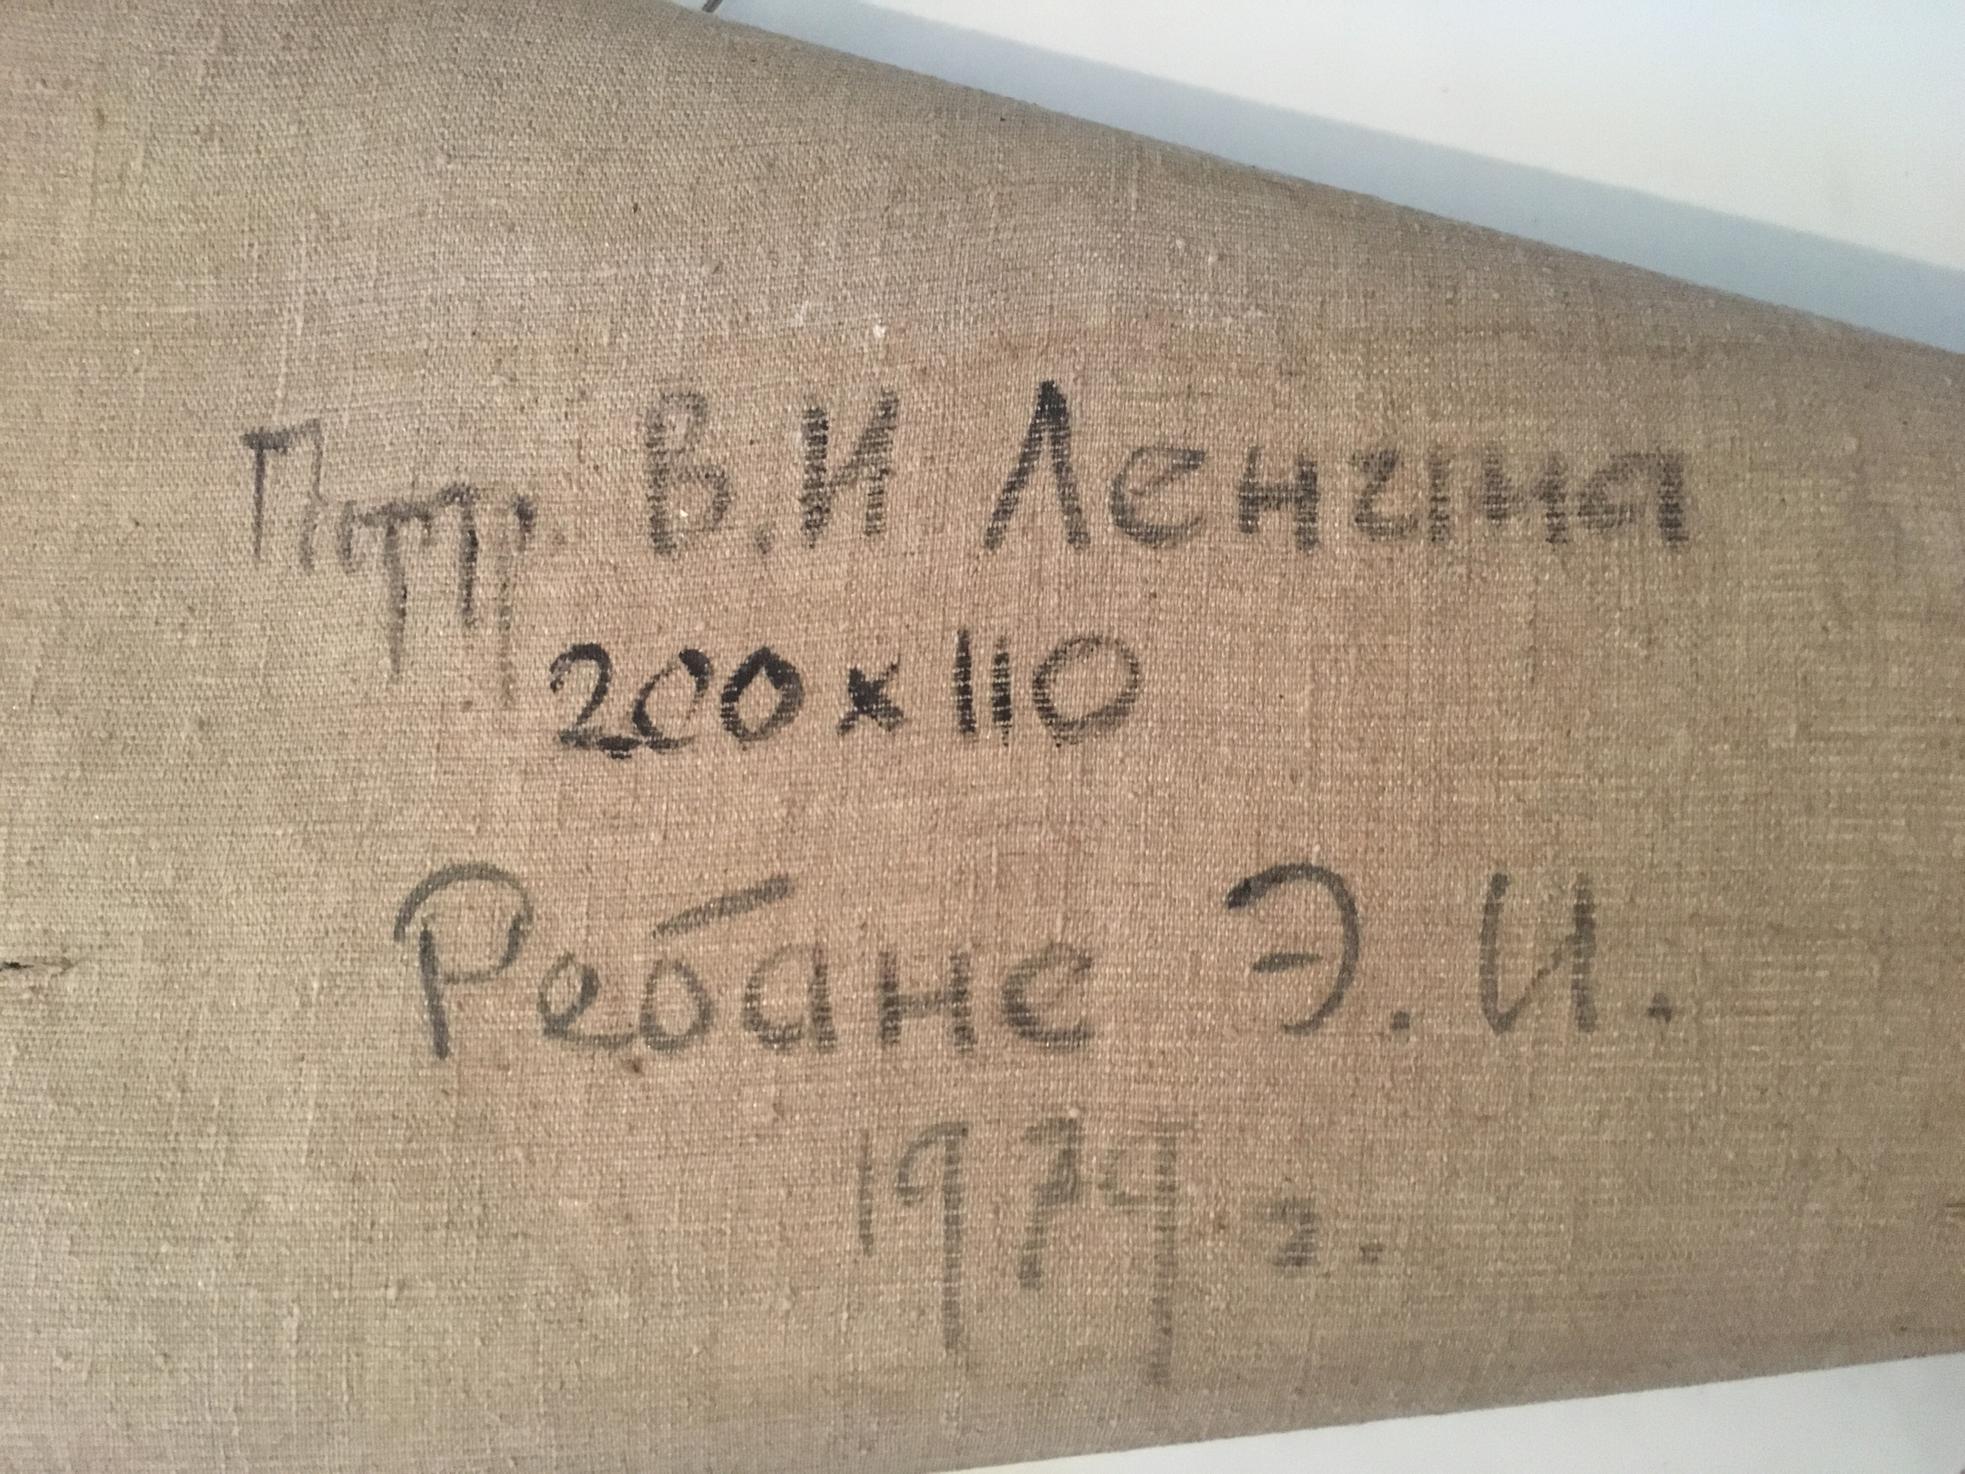 Портр. В.И Ленина
200 х 110
Ребане Э. И.
1979 г.